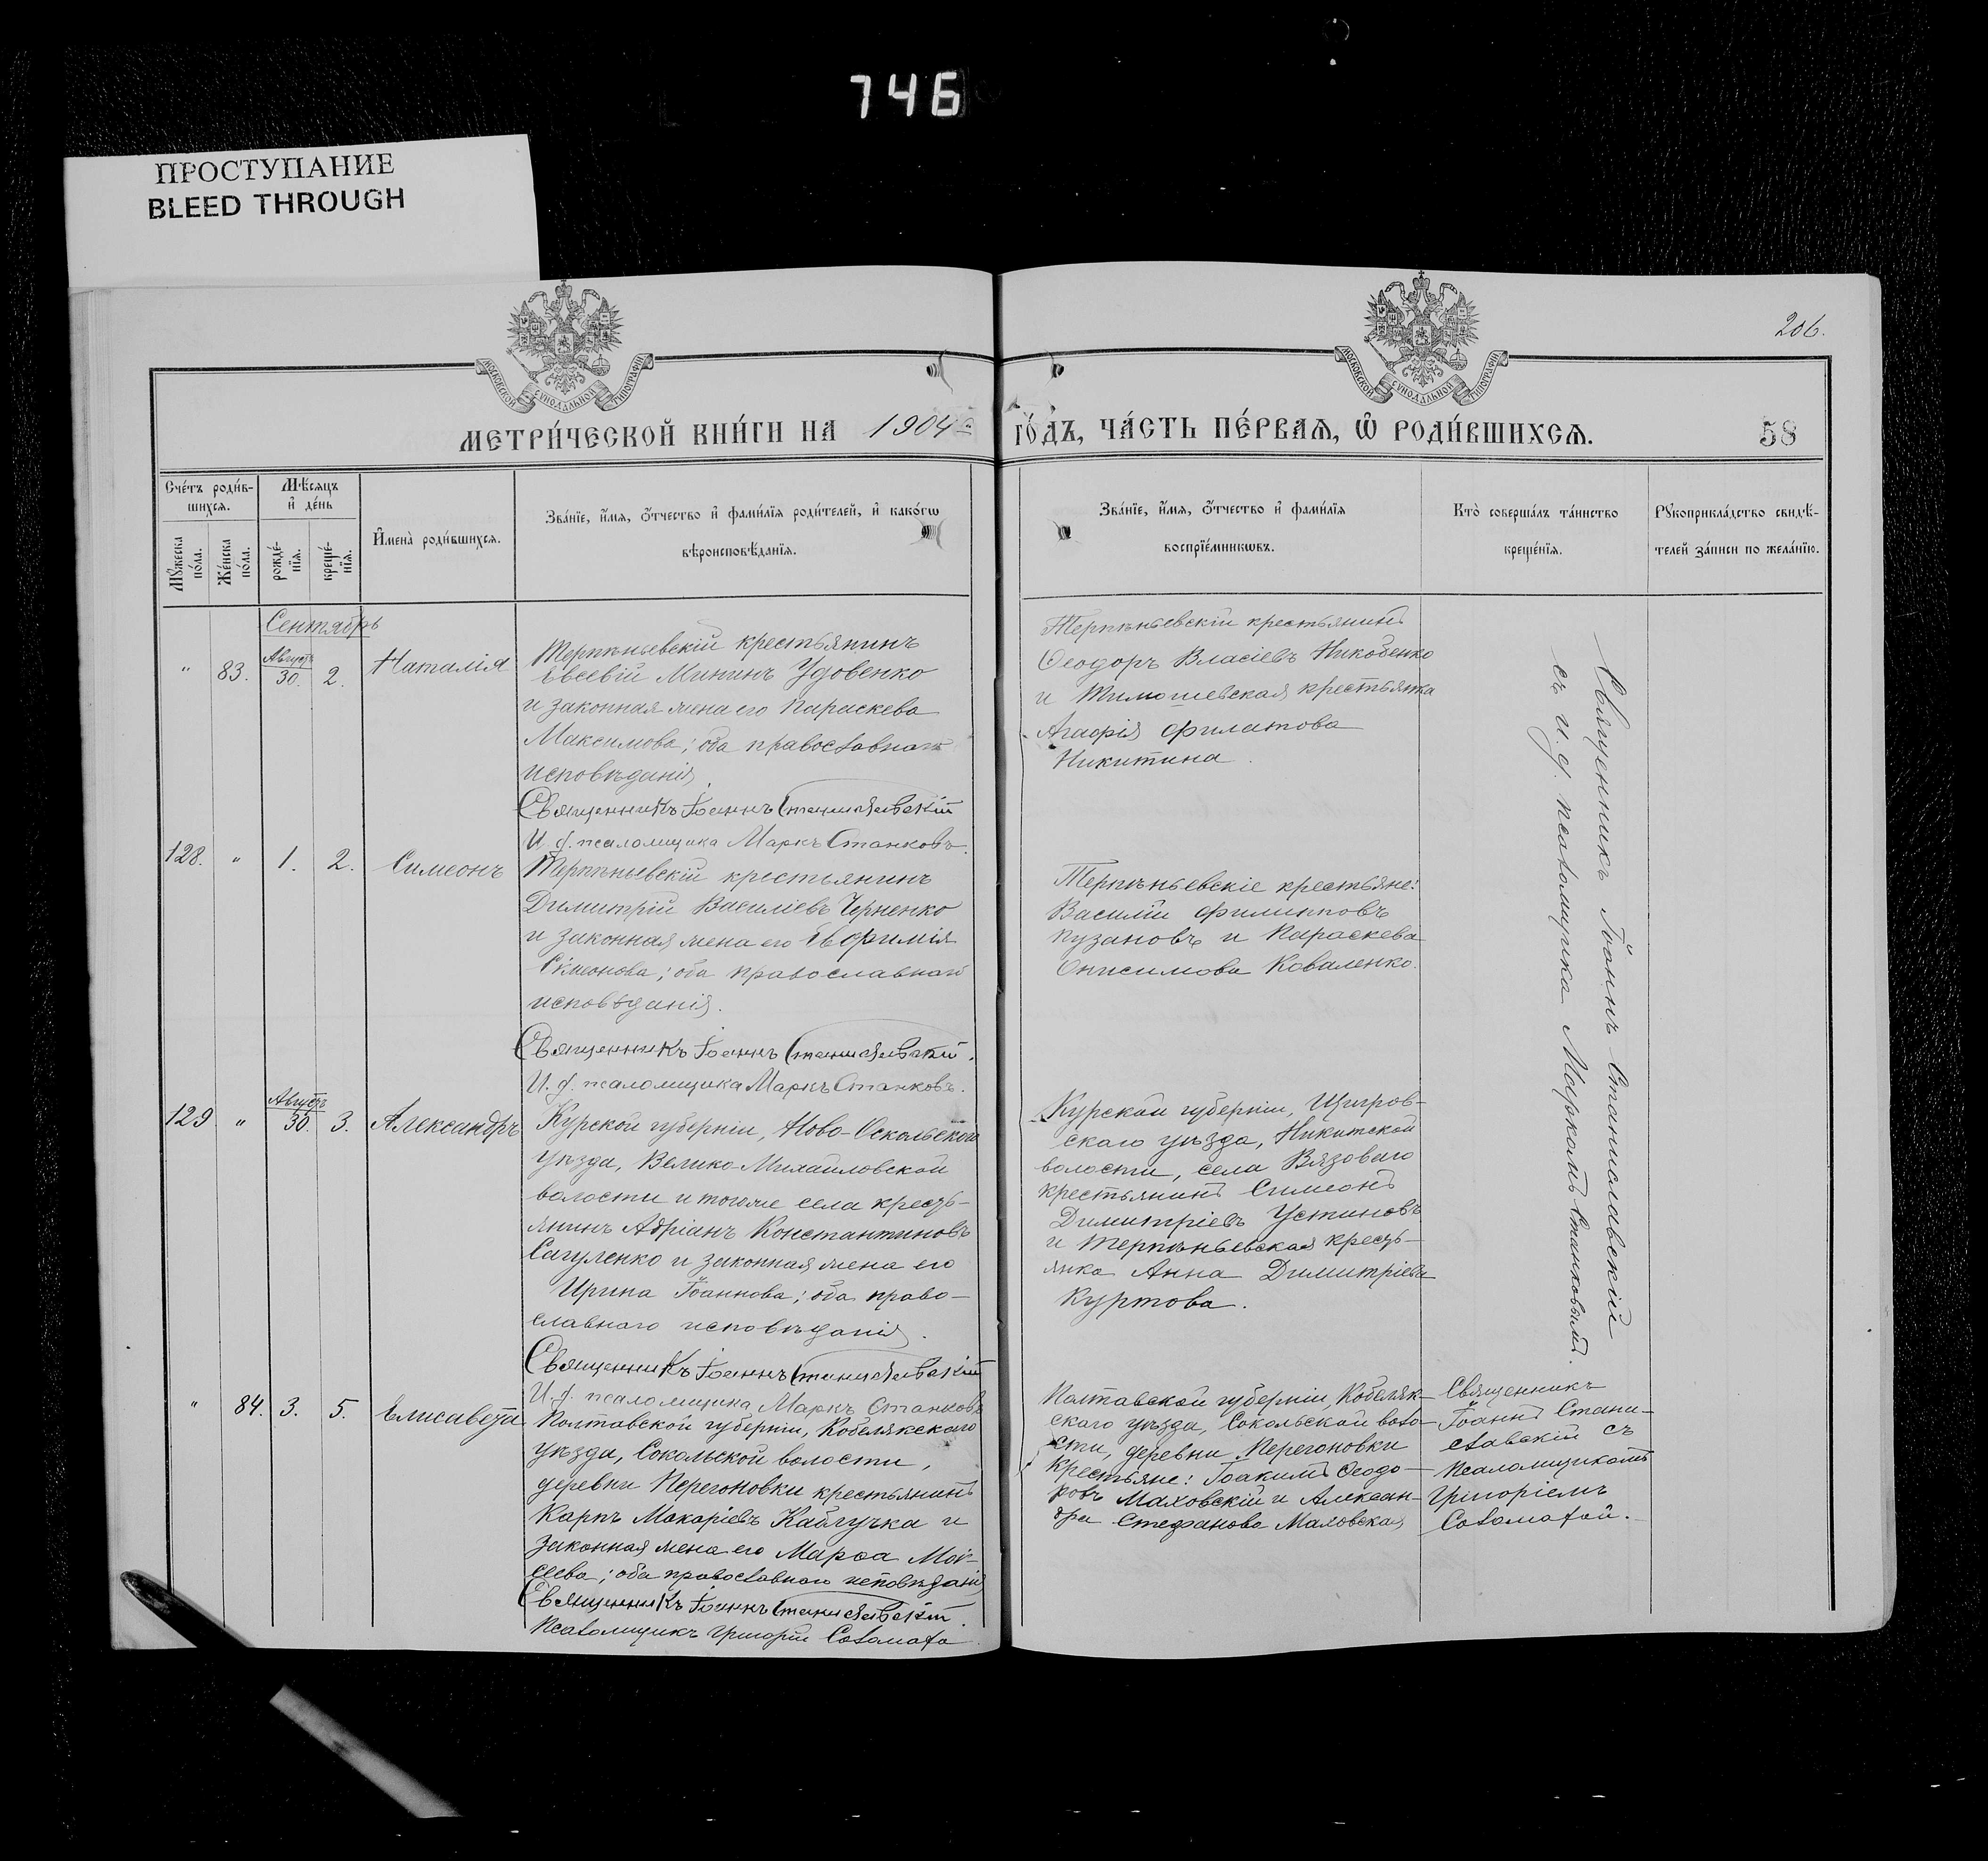 746
ПРОСТУПАНИЕ
BLEED THROUGH
206.
МОСКОВСКОЙ СѴНОДАЛЬНОЙ ТИПОГРАФІИ
МОСКОВСКОЙ СѴНОДАЛЬНОЙ ТИПОГРАФІИ
МЕТРИ́ЧЕСКОЙ КНИ́ГИ НА 1904 го́дъ, ЧА́СТЬ ПЕ́РВАѦ, Ѡ РОДИ́ВШИХСѦ. 58
Сче́тъ роди́в-
шихсѧ.
Мѣ́сѧцъ
и҆ де́нь
Мꙋ́жеска
по́ла.
Же́нска
по́ла.
рожде́-
нїѧ.
креще́-
нїѧ.
И҆мена̀ роди́вшихсѧ.
Зва́нїе, и҆́мѧ, ѻ҆́тчество и҆ фами́лїѧ роди́телей, и҆ како́гѡ
вѣроисповѣ́данїѧ.
Зва́нїе, и҆́мѧ, ѻ҆́тчество и҆ фами́лїѧ
воспрїе́мникѡвъ.
Кто̀ соверша́лъ та́инство
креще́нїѧ.
Рꙋкоприкла́дство свидѣ́-
телей за́писи по жела́нїю.
Сентябрь
" 83. Августъ 30. 2. Наталія
Терпѣньевскій крестьянинъ
Евсевій Мининъ Удовенко
и законная жена его Параскева
Максимова; оба православнаго
исповѣданія.
Священникъ Іоаннъ Станиславскій
И. д. псаломщика Маркъ Станковъ.
Терпѣньевскій крестьянинъ
Ѳеодоръ Власіевъ Никобенко
и Тимошевская крестьянка
Агаѳія Филатова
Никитина.
128. " 1. 2. Симеонъ
Терпѣньевскій крестьянинъ
Димитрій Василіевъ Черненко
и законная жена его Евфимія
Симеонова; оба православнаго
исповѣданія.
Священникъ Іоаннъ Станиславскій.
И. д. псаломщика Маркъ Станковъ.
Терпѣньевскіе крестьяне:
Василій Филипповъ
Пузановъ и Параскева
Онисимова Коваленко.
129 " Августъ 30. 3. Александръ
Курской губерніи, Ново-Оскольскаго
уѣзда, Велико-Михайловской
волости и тогоже села кресть-
янинъ Адріанъ Константиновъ
Сагуленко и законная жена его
Ирина Іоаннова; оба право-
славнаго исповѣданія.
Священникъ Іоаннъ Станиславскій
И. д. псаломщика Маркъ Станковъ
Курской губерніи, Щигров-
скаго уѣзда, Никитской
волости, села Вязоваго
крестьянинъ Симеонъ
Димитріевъ Устиновъ
и Терпѣньевская кресть-
янка Анна Димитріева
Куртова.
Священникъ Іоаннъ Станиславскій
съ и. д. псаломщика Маркомъ Станковымъ.
" 84. 3. 5. Елисавета
Полтавской губерніи, Кобелякскаго
уѣзда, Сокольской волости,
деревни Перегоновки крестьянинъ
Карпъ Макаріевъ Каблучка и
законная жена его Марѳа Мои-
сеева; оба православнаго исповѣданія
Священникъ Іоаннъ Станиславскій.
Псаломщикъ Григорій Соломаха
Полтавской губерніи, Кобеляк-
скаго уѣзда, Сокольской воло-
сти, деревни Перегоновки
крестьяне: Іоакимъ Ѳеодо-
ровъ Маховскій и Алексан-
дра Стефанова Маховская
Священникъ
Іоаннъ Стани-
славскій съ
псаломщикомъ
Григоріемъ
Соломахой.